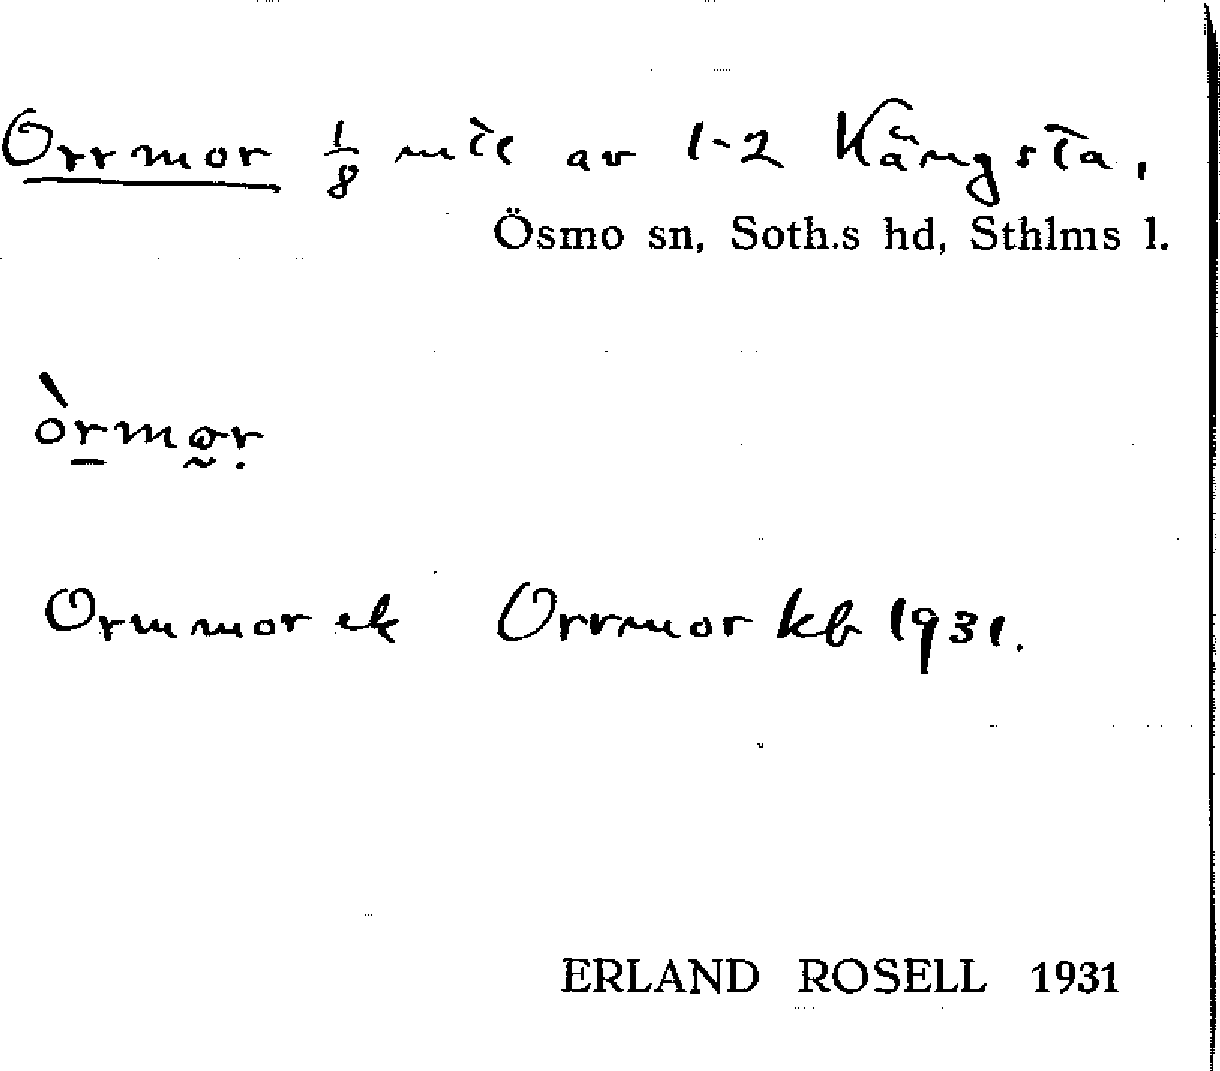 Orrmor 1/8 mtl av 1-2 Kängsta,
Ösmo sn, Soth.s hd, Sthlms l.
òrmər
Ormmor ek Orrmor kb 1931.
ERLAND ROSELL 1931